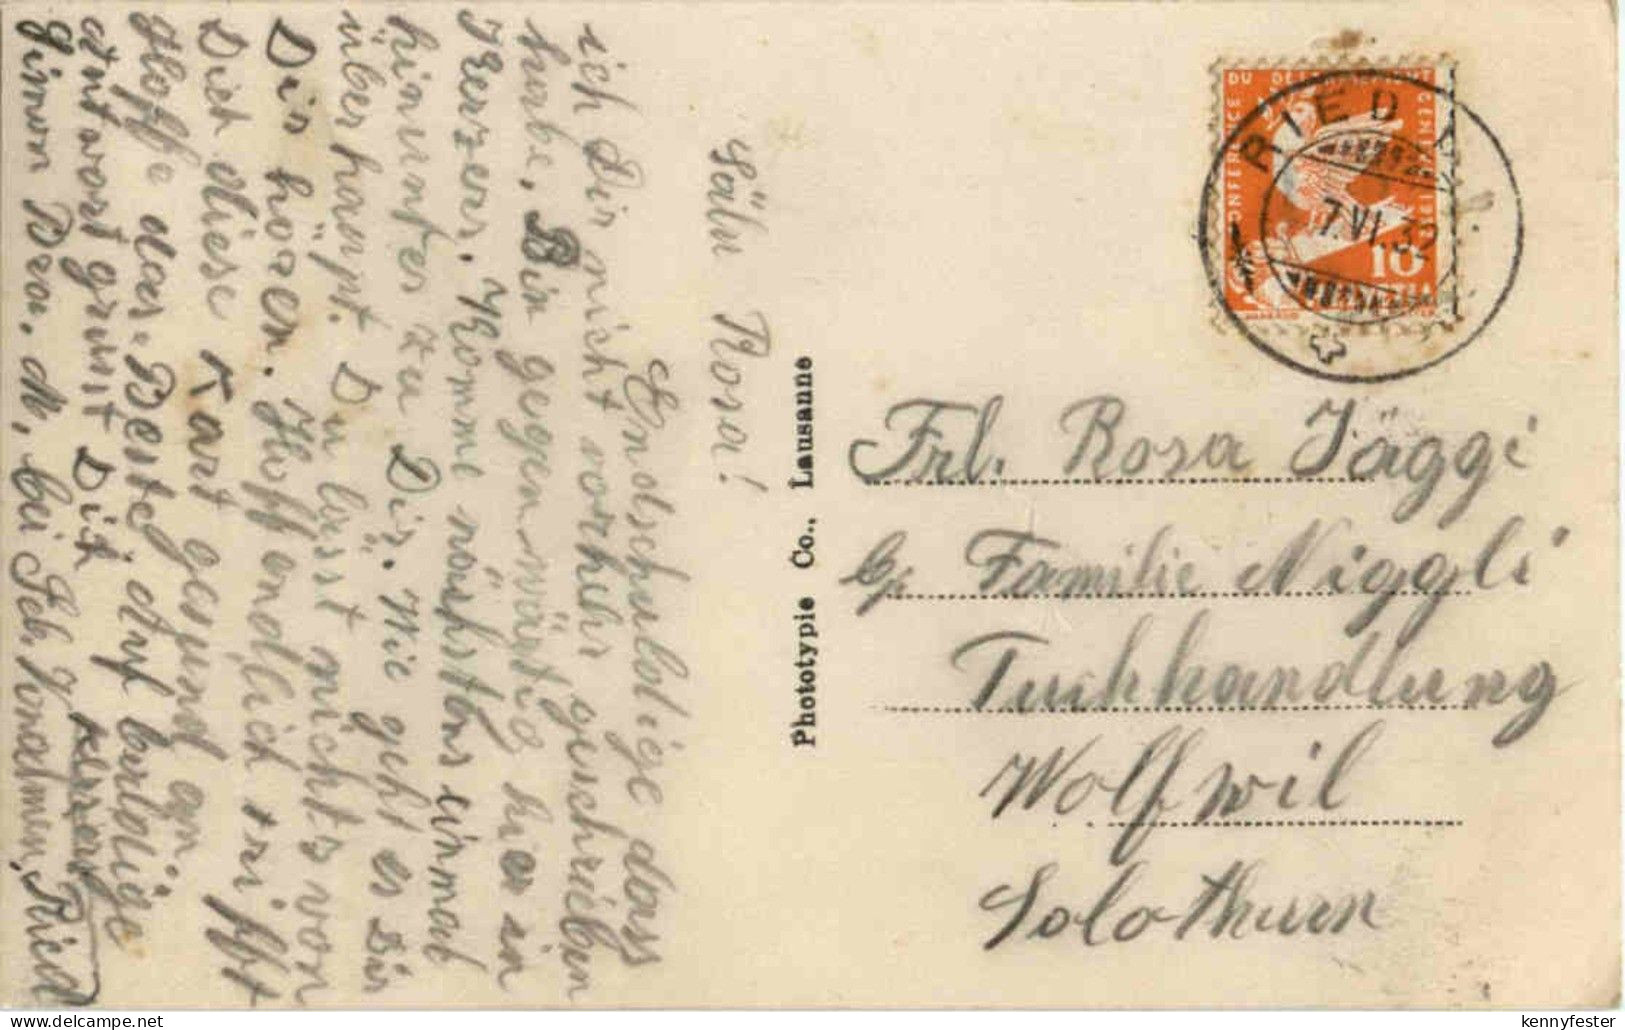 Sälu Rosa!
Endschuldige dass
ich Dir nicht vorher geschrieben
habe. Bin gegenwärtig hier in
Kerzers. Komme nächstens einmal
hinunter zu Dir. Wie geht es Dir
überhaupt. Du lässt nichts von
Dir hören. Hoffendlich trifft
Dich diese Kart gesund an.
Hoffe das Beste, auf baldige
Antwort grüsst Dich
bei Feb. Ried
Phototypie Co., Lausanne
CONFERENCE DU DESARMEMENT
GENEVE 1932
10
HELVETIA
RIED
7.VI.32
Frl. Rosa Jäggi
Familie Niggli
Tuchhandlung
Wolfwil
Solothurn
kennyfester